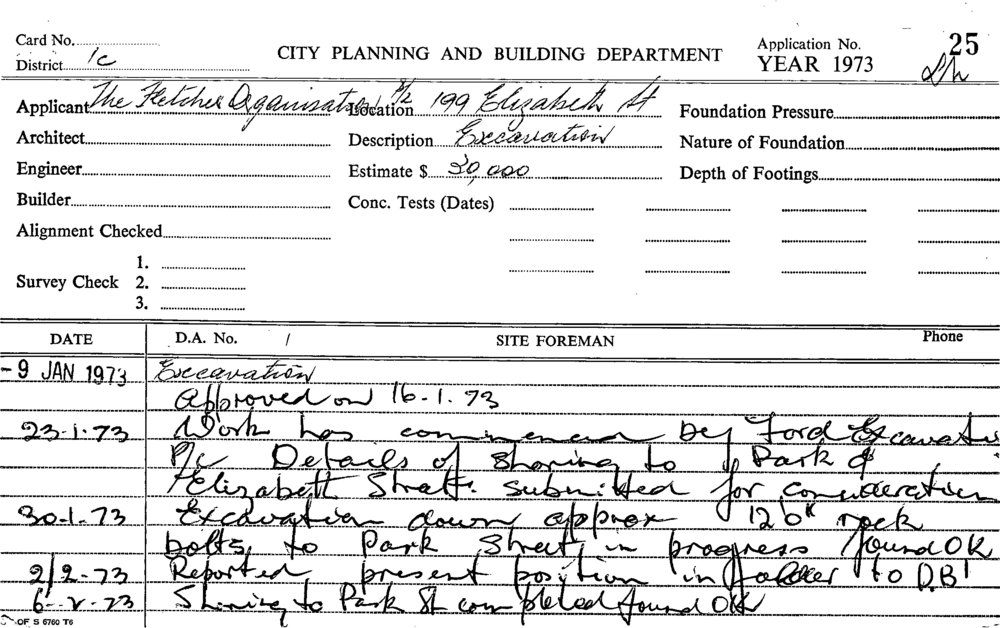 Card No.
District 1c
CITY PLANNING AND BUILDING DEPARTMENT
Application No. 25
YEAR 1973
Applicant The Fletcher Organisation P/L
Location 199 Elizabeth St
Foundation Pressure
Architect
Description Excavation
Nature of Foundation
Engineer
Estimate $ 30,000
Depth of Footings
Builder
Conc. Tests (Dates)
Alignment Checked
Survey Check 1.
2.
3.
DATE D.A. No. / SITE FOREMAN Phone
-9 JAN 1973 Excavation
Approved on 16-1.73
23-1-73 Work has commenced by Ford Excavatio
P/L Details of Shoring to Park &
Elizabeth Streets. submitted for consideration
30-1-73 Excavation down approx 12'0" rock
bolts, to Park Street, in progress found OK
2/2-73 Reported present position in folder to D.B.I
6-2-73 Shoring to Park St completed found OK
OF S 6760 T6